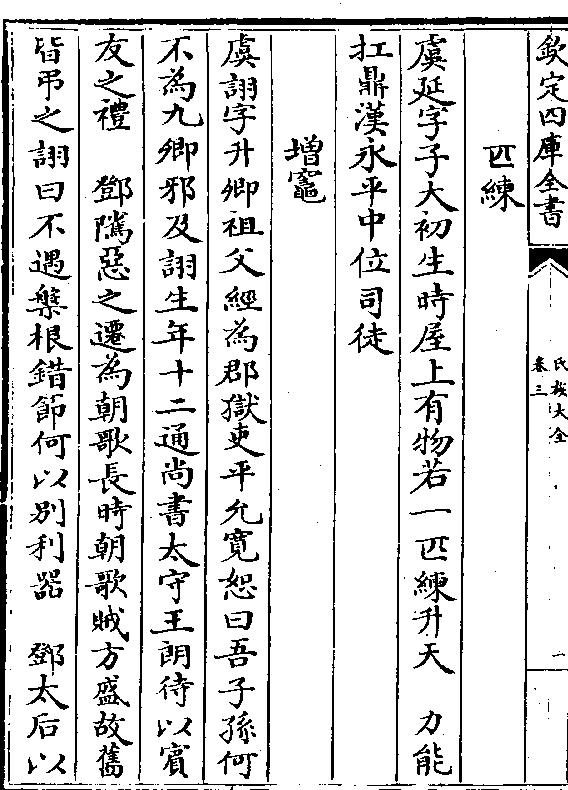 欽定四庫全書
氏族大全
卷三
一
匹練
虞延字子大初生時屋上有物若一匹練升天　力能
扛鼎漢永平中位司徒
增竈
虞詡字升卿祖父經為郡獄吏平允寛恕曰吾子孫何
不為九卿邪及詡生年十二通尚書太守王朗待以賓
友之禮　鄧隲惡之遷為朝歌長時朝歌賊方盛故舊
皆弔之詡曰不遇槃根錯節何以別利器　鄧太后以